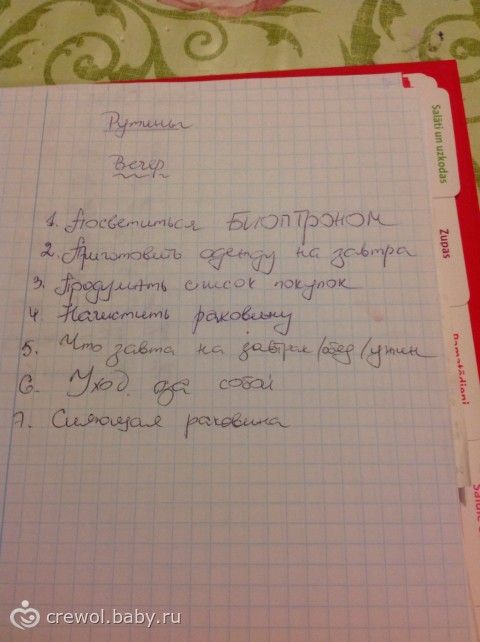 Рутины
Вечер
1. Посветиться БИОПТРОНОМ
2. Приготовить одежду на завтра
3. Продумать список покупок
4. Начистить раковину
5. Что завта на завтрак/обед/ужин
6. Уход за собой
7. Сияющая раковина
Salāti un uzkodas
Zupas
Pamatēdieni
crewol.baby.ru